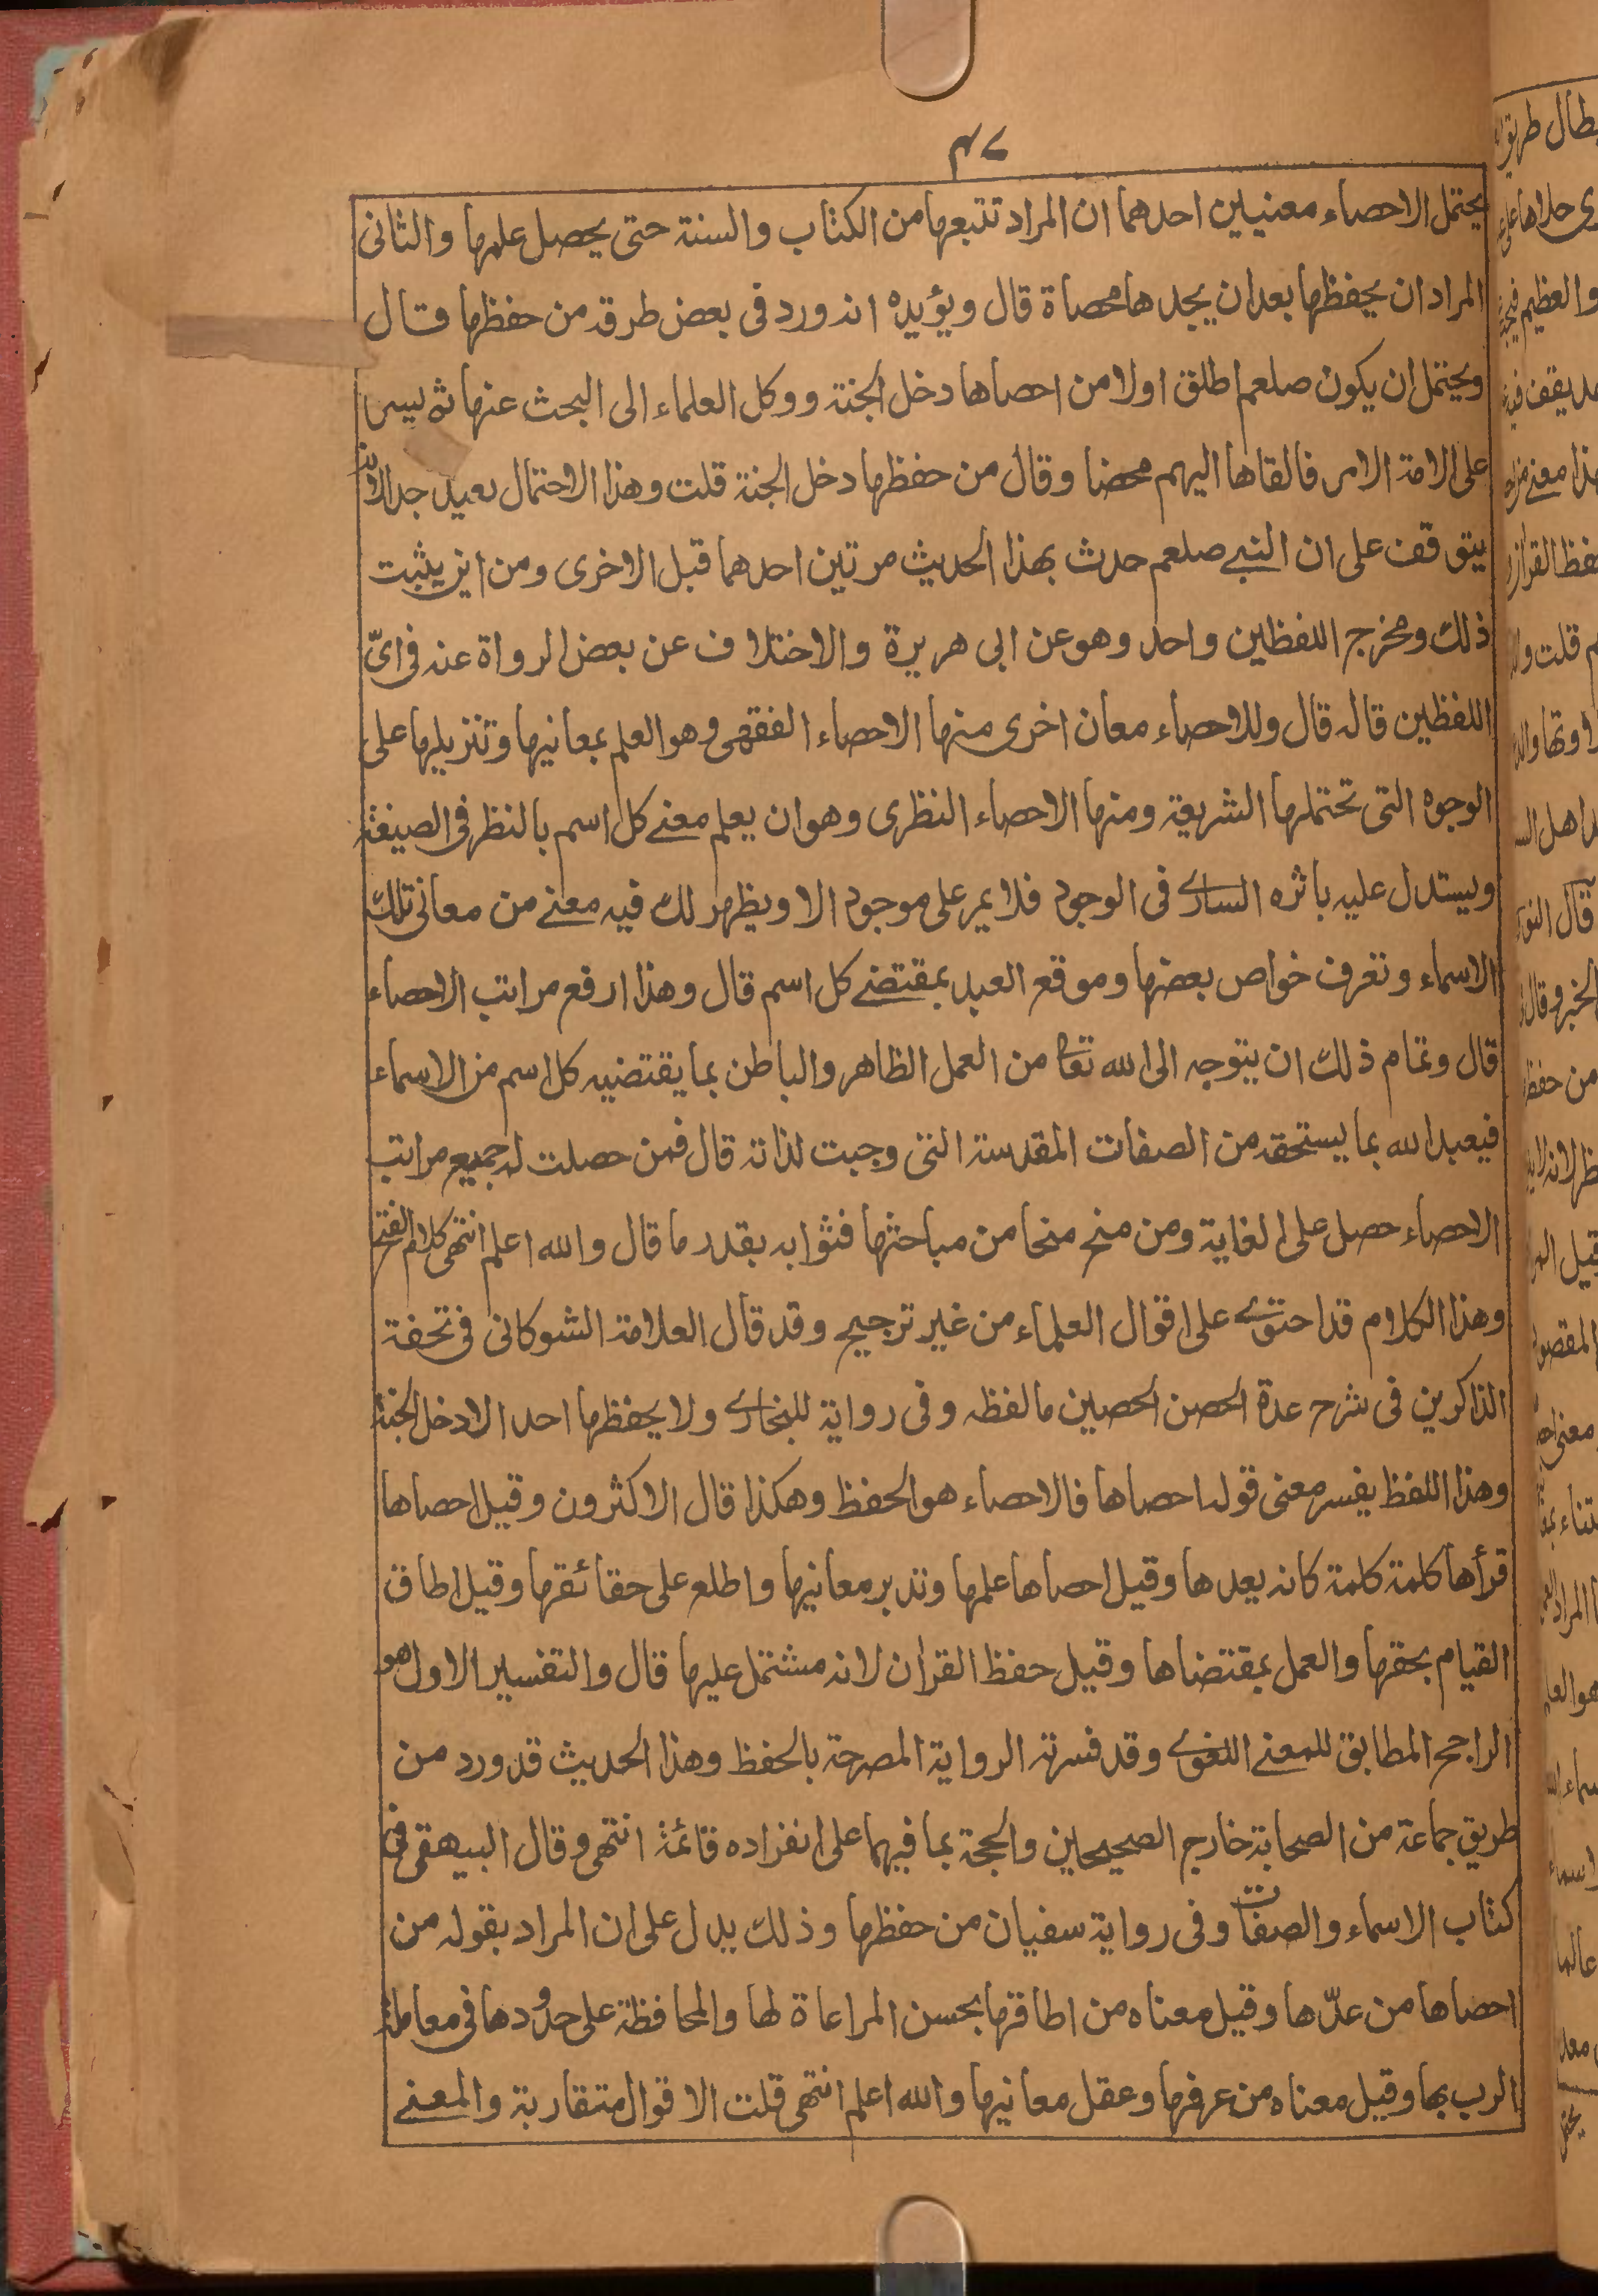 ۴۷
يحتمل الاحصاء معنيين احدهما ان المراد تتبعها من الكتاب والسنة حتى يحصل علمها والثانى
المراد ان يحفظها بعد ان يجدها محصاة قال ويؤيده انه ورد فى بعض طرقه من حفظها قال
ويحتمل ان يكون صلعم اطلق اولا من احصاها دخل الجنة ووكل العلماء الى البحث عنها ثم يسر
على الامة الامر فالقاها اليهم محضا وقال من حفظها دخل الجنة قلت وهذا الاحتمال بعيد جدا لانه
يتوقف على ان النبے صلعم حدث بهذا الحديث مرتين احدهما قبل الاخرى ومن اين يثبت
ذلك ومخرج اللفظين واحد وهو عن ابى هريرة والاختلاف عن بعض الرواة عنه فى اىّ
اللفظين قاله قال وللاحصاء معان اخرى منها الاحصاء الفقهى وهو العلم بمعانيها وتنزيلها على
الوجوه التى تحتملها الشريعة ومنها الاحصاء النظرى وهو ان يعلم معنے كل اسم بالنظر فى الصيغة
ويستدل عليه باثره السارے فى الوجود فلا يمر على موجود الا ويظهر لك فيه معنے من معانى تلك
الاسماء وتعرف خواص بعضها وموقع العبد بمقتضے كل اسم قال وهذا ارفع مراتب الاحصاء
قال وتمام ذلك ان يتوجه الى الله تعا من العمل الظاهر والباطن بما يقتضيه كل اسم من الاسماء
فيعبد الله بما يستحقه من الصفات المقدسة التى وجبت لذاته قال فمن حصلت له جميع مراتب
الاحصاء حصل على الغاية ومن منح منحا من مباحثها فثوابه بقدر ما قال والله اعلم انتهى كلام الفتح
وهذا الكلام قد احتوے على اقوال العلماء من غير ترجيح وقد قال العلامة الشوكانى فى تحفة
الذاكرين فى شرح عدة الحصن الحصين ما لفظه وفى رواية للبخارے ولا يحفظها احد الا دخل الجنة
وهذا اللفظ يفسر معنى قوله احصاها فالاحصاء هو الحفظ وهكذا قال الاكثرون وقيل احصاها
قرأها كلمة كلمة كانه يعدها وقيل احصاها علمها وتدبر معانيها واطلع على حقائقها وقيل اطاق
القيام بحقها والعمل بمقتضاها وقيل حفظ القران لانه مشتمل عليها قال والتفسير الاول هو
الراجح المطابق للمعنے اللغوے وقد فسرته الرواية المصرحة بالحفظ وهذا الحديث قد ورد من
طريق جماعة من الصحابة خارج الصحيحين والحجة بما فيهما على انفراده قائمة انتهى وقال البيهقى فى
كتاب الاسماء والصفات وفى رواية سفيان من حفظها وذلك يدل على ان المراد بقوله من
احصاها من عدّها وقيل معناه من اطاقها بحسن المراعاة لها والمحافظة على حدودها فى معاملة
الرب بها وقيل معناه من عرفها وعقل معانيها والله اعلم انتهى قلت الاقوال متقاربة والمعنے